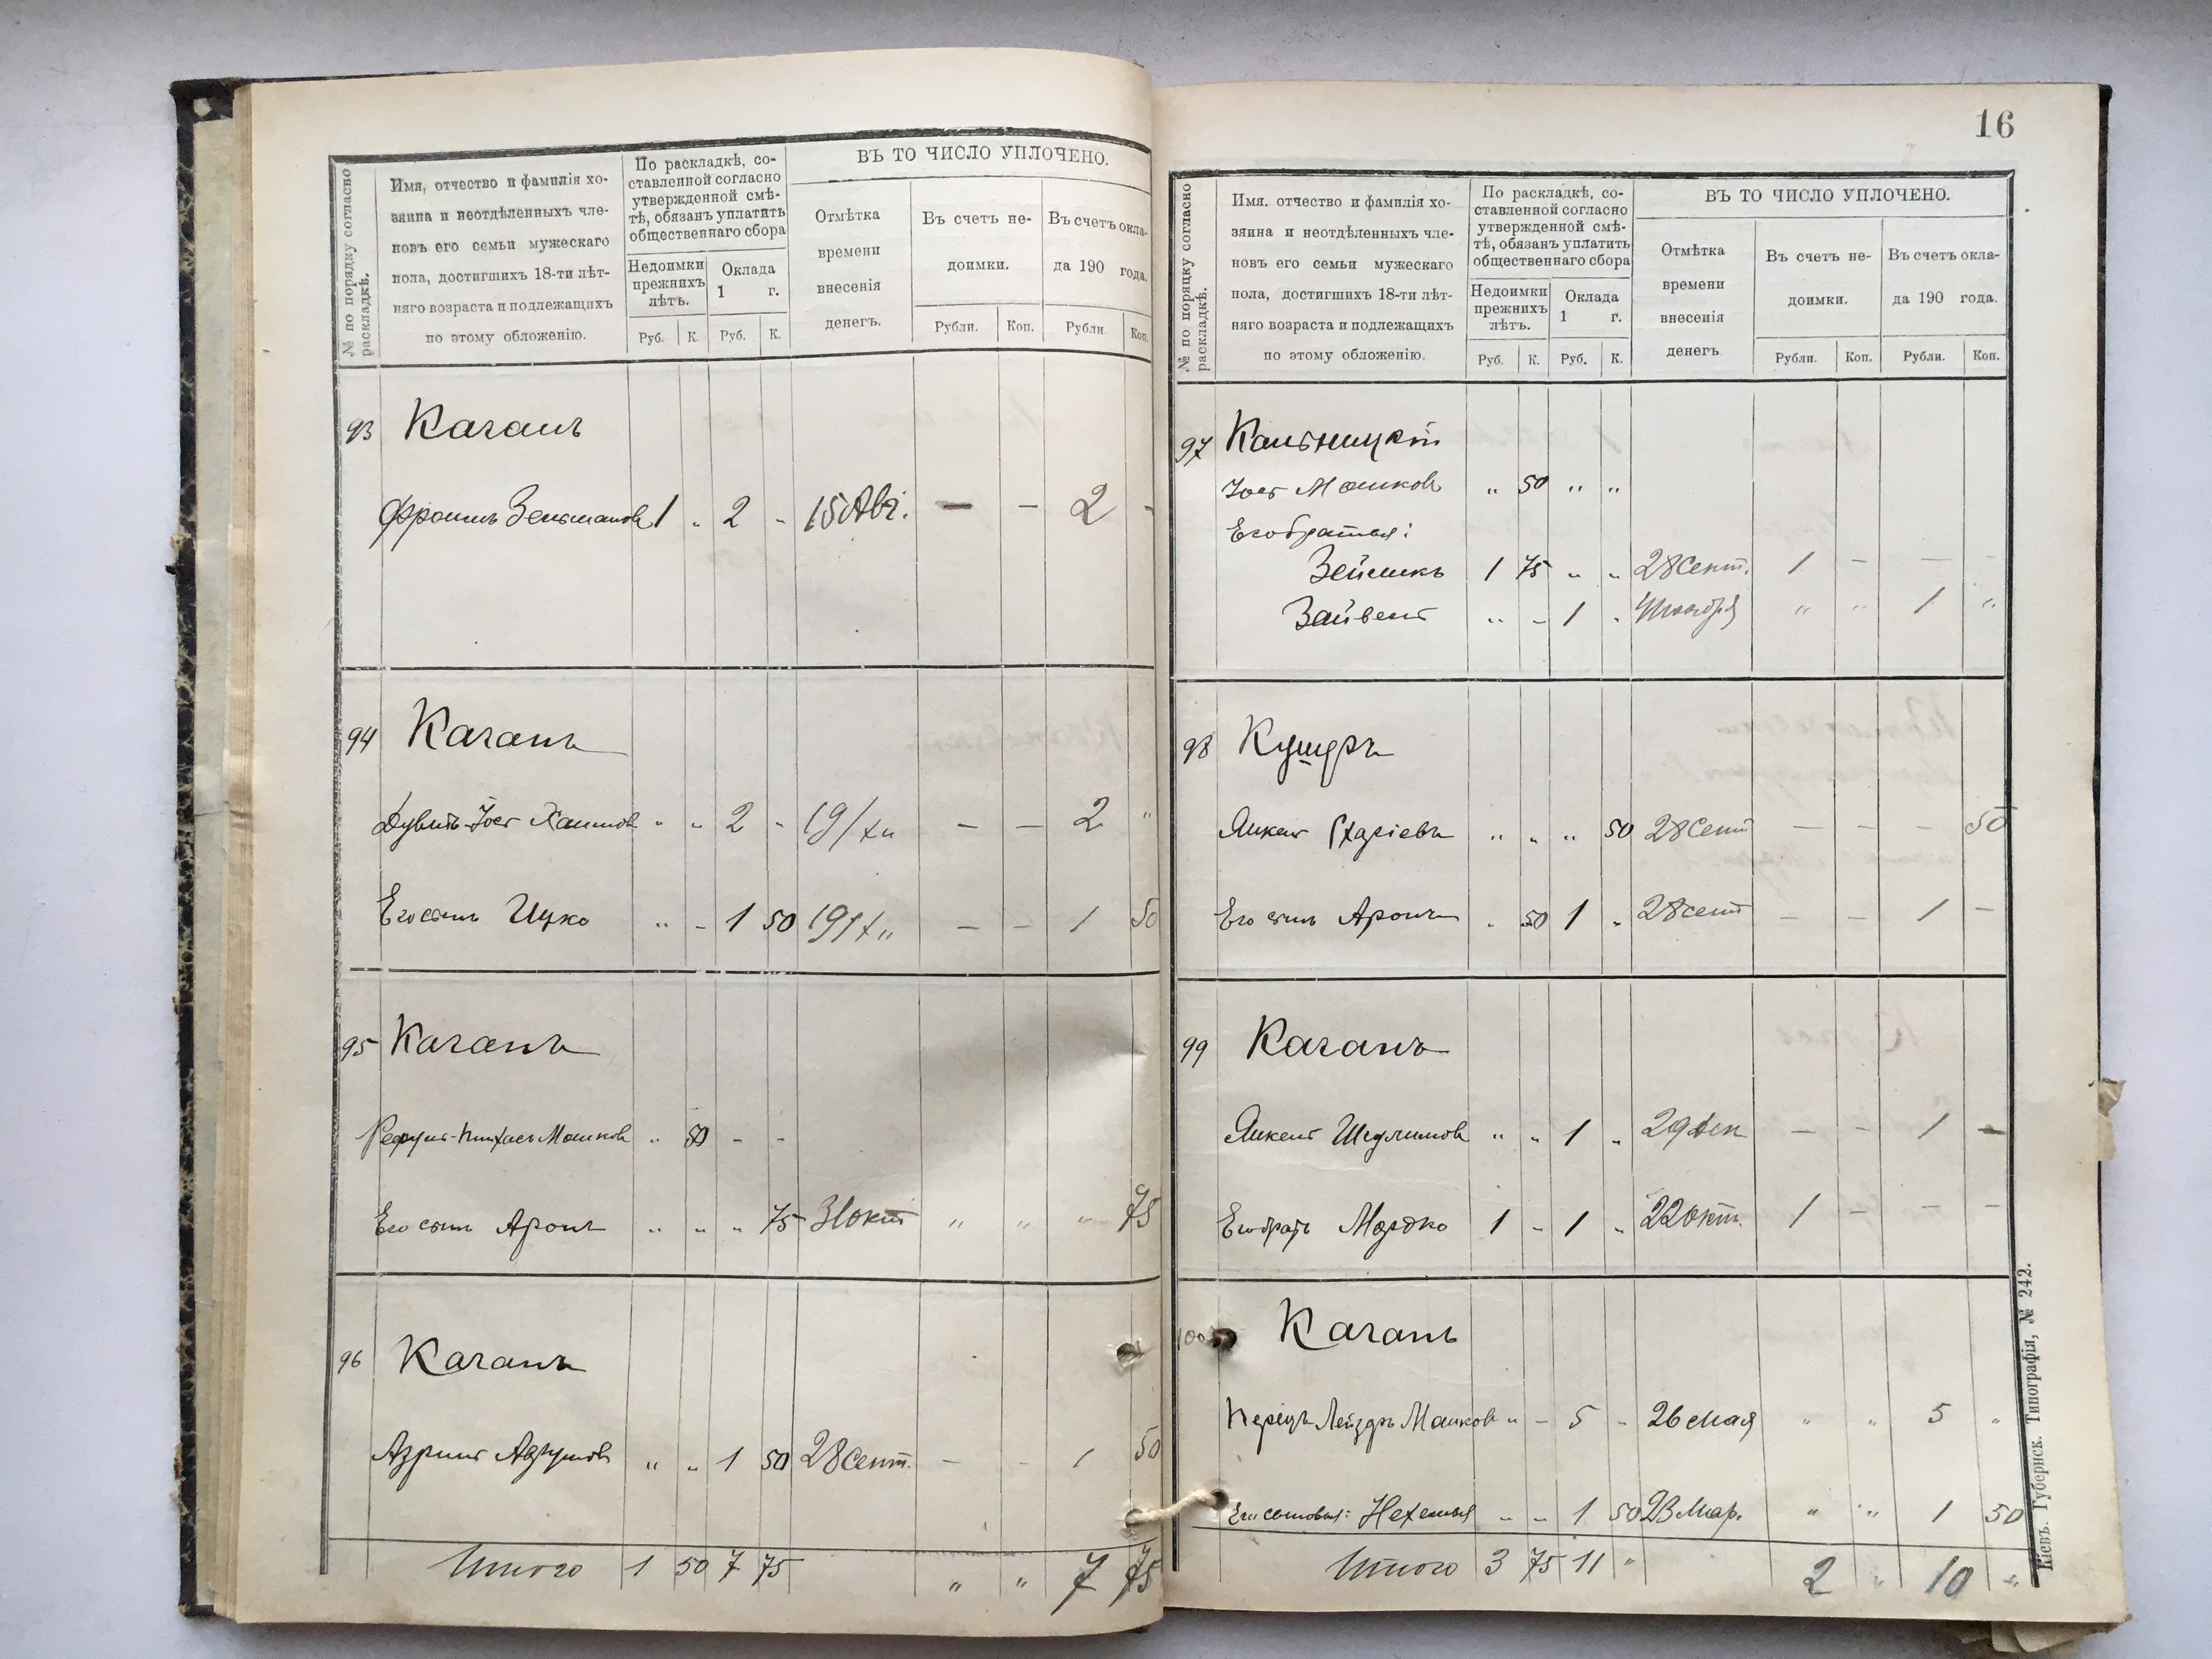 № по порядку согласно раскладкѣ.
Имя, отчество и фамилія хо-
зяина и неотдѣленныхъ чле-
новъ его семьи мужескаго
пола, достигшихъ 18-ти лѣт-
няго возраста и подлежащихъ
по этому обложенію.
По раскладкѣ, со-
ставленной согласно
утвержденной смѣ-
тѣ, обязанъ уплатить
общественнаго сбора
Недоимки
прежнихъ
лѣтъ.
Оклада
1 г.
Руб. К. Руб. К.
ВЪ ТО ЧИСЛО УПЛОЧЕНО.
Отмѣтка
времени
внесенія
денегъ.
Въ счетъ не-
доимки.
Въ счетъ окла-
да 190 года.
Рубли. Коп. Рубли. Коп.
93 Каганъ
Фроимъ Зельманов 1 „ 2 - 15 Авг. — — 2 -
94 Каганъ
Дувидъ-Іось Хаимов „ „ 2 - 19/XII — — 2 „
Его сынъ Ицко „ - 1 50 19/XII — — 1 50
95 Каганъ
Пинхасъ Мошков „ 50 - -
Его сынъ Аронъ „ „ „ 75 31 окт „ „ „ 75
96 Каганъ
Азриль „ „ 1 50 28 сент. - - 1 50
Итого 1 50 7 75 „ „ 7 75
16
№ по порядку согласно раскладкѣ.
Имя. отчество и фамилія хо-
зяина и неотдѣленныхъ чле-
новъ его семьи мужескаго
пола, достигшихъ 18-ти лѣт-
няго возраста и подлежащихъ
по этому обложенію.
По раскладкѣ, со-
ставленной согласно
утвержденной смѣ-
тѣ, обязанъ уплатить
общественнаго сбора
Недоимки
прежнихъ
лѣтъ.
Оклада
1 г.
Руб. К. Руб. К.
ВЪ ТО ЧИСЛО УПЛОЧЕНО.
Отмѣтка
времени
внесенія
денегъ
Въ счетъ не-
доимки.
Въ счетъ окла-
да 190 года.
Рубли. Коп. Рубли. Коп.
97 Кальницкій
Іось Мошков „ 50 „ „
Его братья:
Зейликъ 1 75 „ „ 28 Сент. 1 — — -
Зайвель „ - 1 „ „ „ 1 „
98 Кушеръ
Янкель „ „ „ 50 28 Сент — — - 50
Его сынъ Аронъ „ 50 1 „ 28 сент - - 1 -
99 Каганъ
Янкель Шулимов „ „ 1 „ 29 дек — - 1 —
Его братъ Мордко 1 - 1 „ 22 окт. 1 — - -
100 Каганъ
Перецъ Лейзеръ Мошков „ - 5 - 26 мая „ „ 5 „
Его сыновья: Нехемья „ - 1 50 23 Мар. „ „ 1 50
Итого 3 75 11 „ 2 „ 10 „
Кіевъ. Губернск. Типографія, № 242.